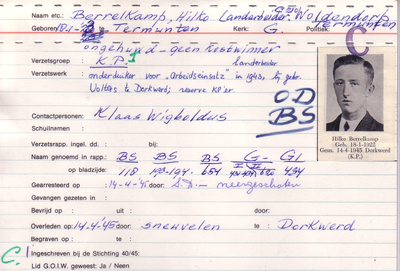 Naam etc.: Berrelkamp, Hilko Landarbeider Woldendorp
Termunten
Geboren: 18-1- Termunten Kerk: G. Politiek:
C
ongehuwd - geen kostwinner
Verzetsgroep : K.P. landarbeider
Verzetswerk : onderduiker voor "Arbeidseinsatz" in 1943, bij gebr.
Wolters te Dorkwerd; reserve KP'er.
OD
BS
Contactpersonen: Klaas Wigboldus
Schuilnamen :
Hilko Berrelkamp
Geb. 18-1-1922
Gesn. 14-4-1945 Dorkwerd
(K.P.)
Verzetsrapp. ingel. dd. : bij:
Naam genoemd in rapp.: BS BS BS G- G1
op bladzijde: 118 193-194 654 434
Gearresteerd op : 14-4-'45 door: S.D. - neergeschoten
Gevangen gezeten in :
Bevrijd op : uit : door:
Overleden op : 14-4-'45 door: sneuvelen te : Dorkwerd
Begraven op : te :
C. Ingeschreven bij de Stichting 40/45:
Lid G.O.I.W. geweest: Ja / Neen